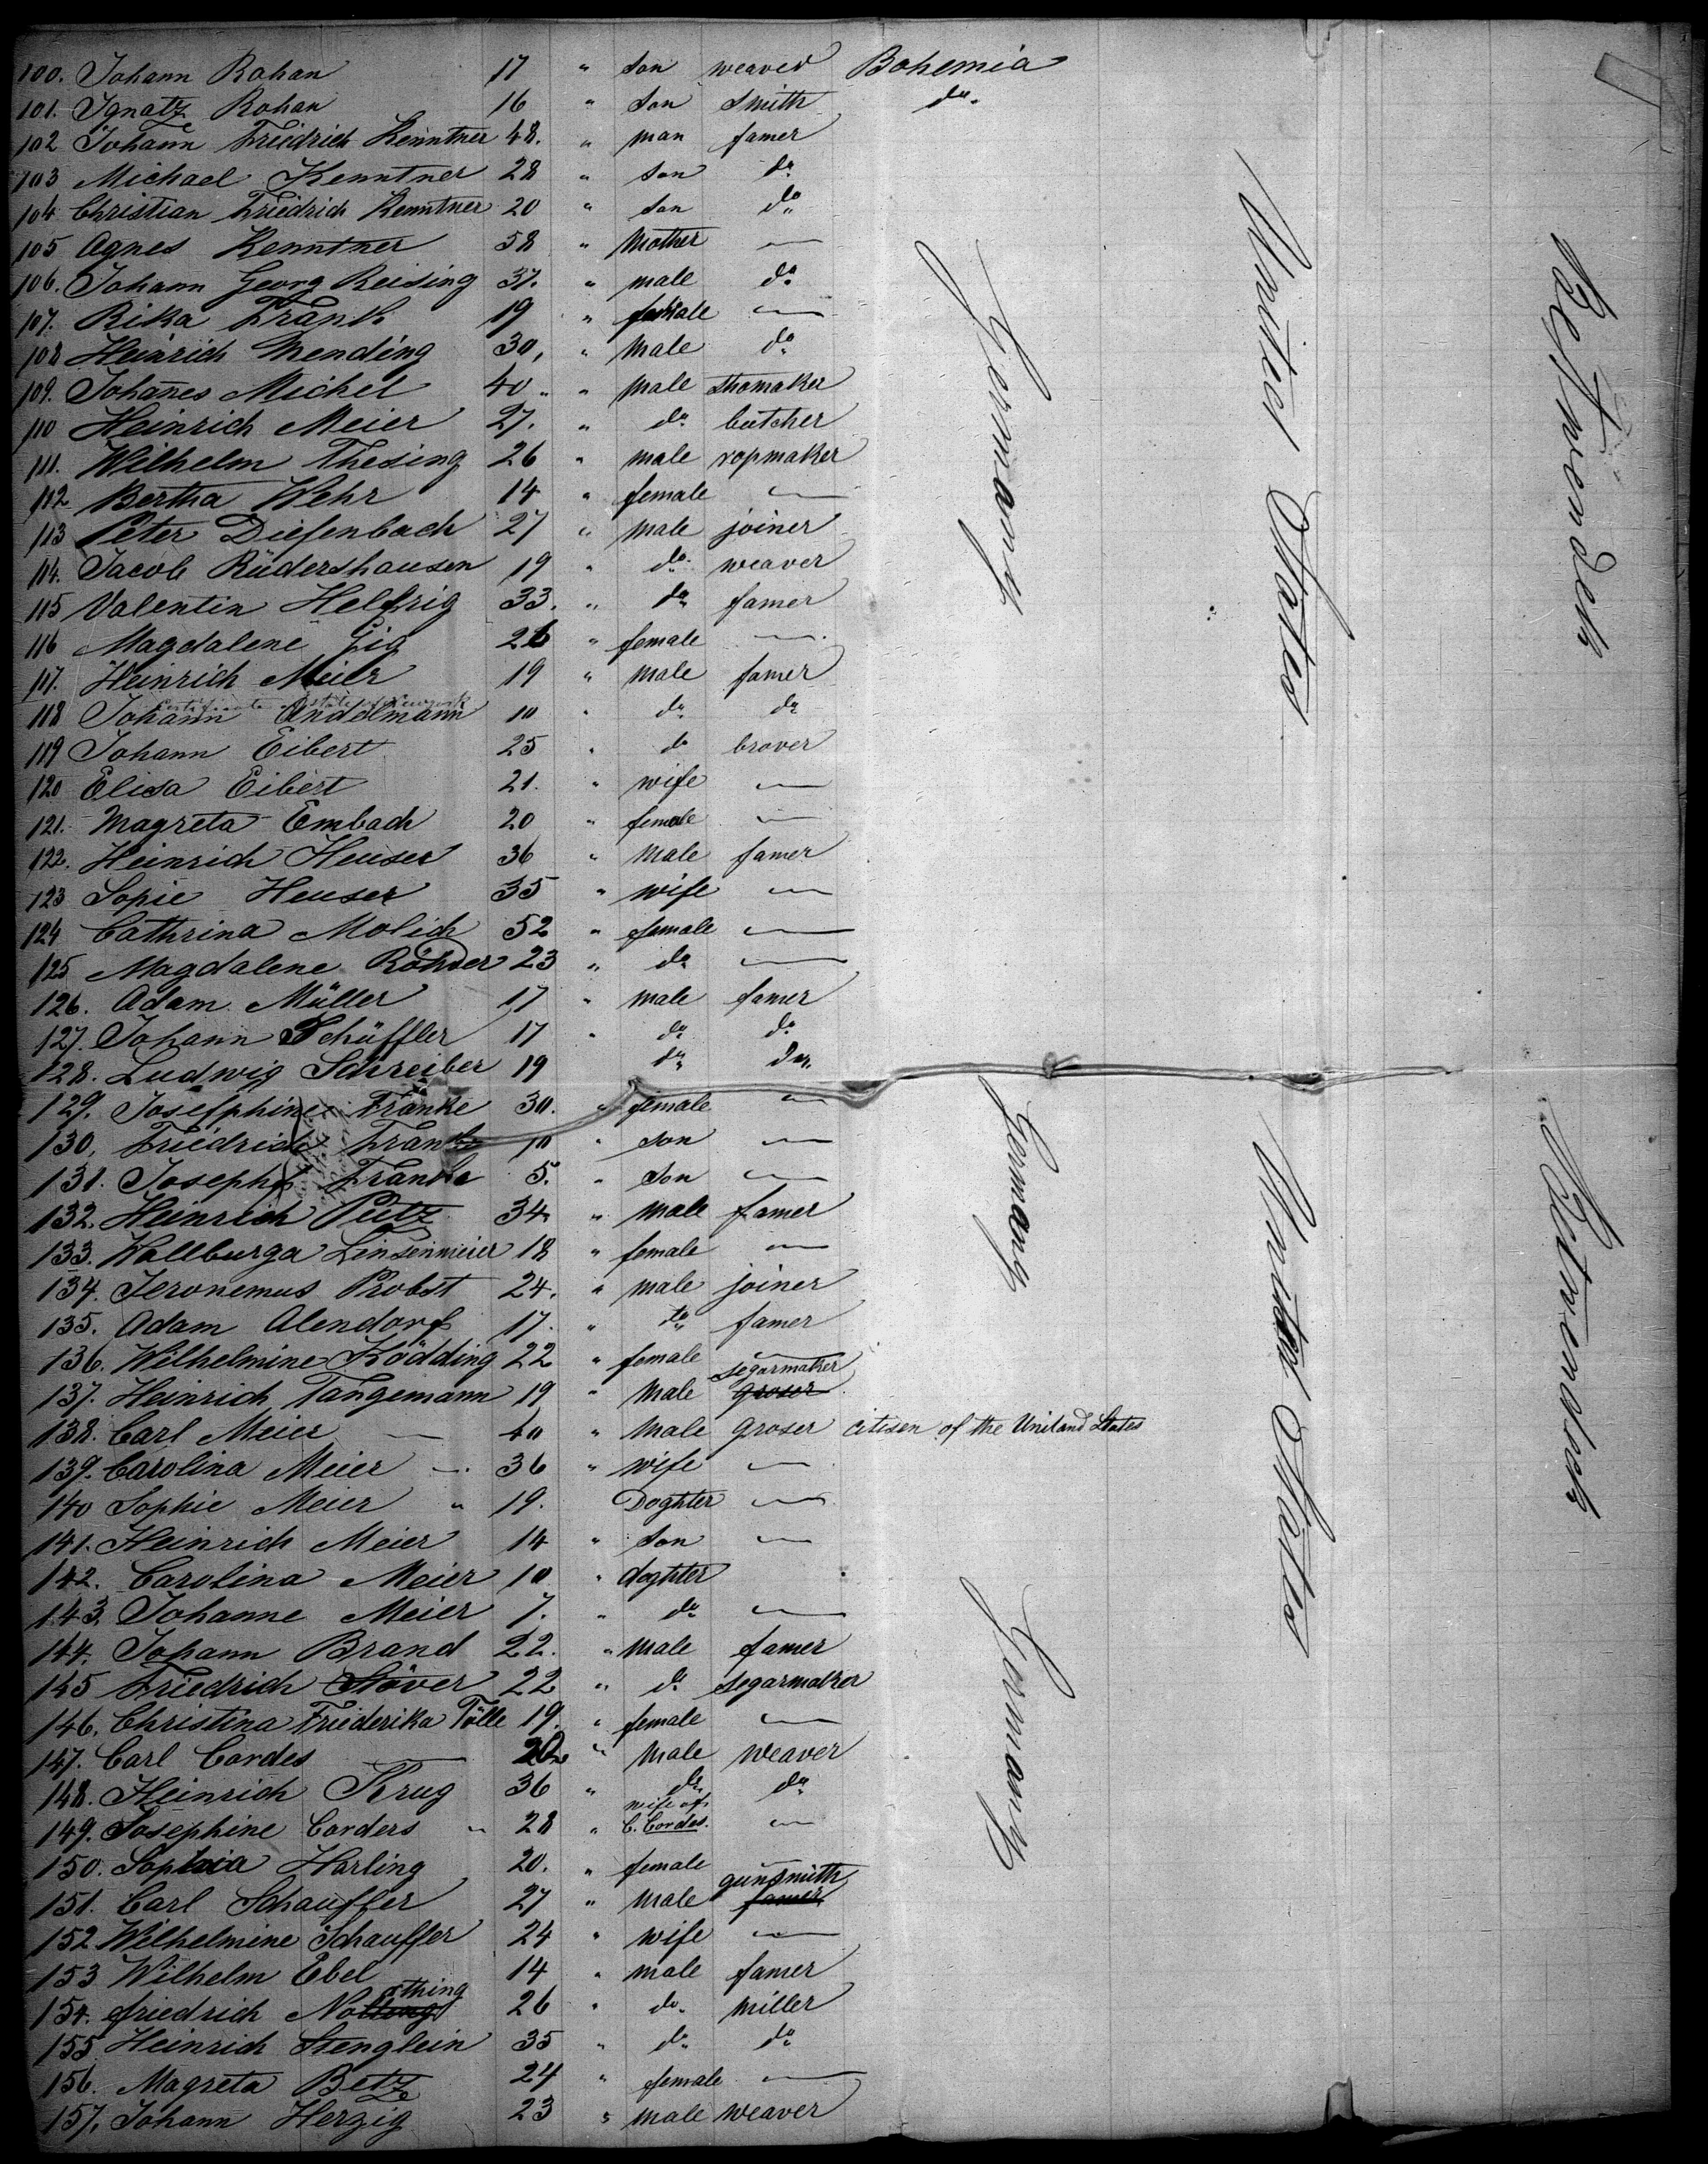 100. Johann Rohan 17 " son weaver Bohemia
101. Ignatz Rohan 16 " son Smith do.
102 Johann Friedrich Kenntner 48. " man famer
103 Michael Kenntner 28 " son do
104 Christian Friedrich Kenntner 20 " son do
105 Agnes Kenntner 58 " Mother —
106. Johann Georg Reising 37. " male do
107. Rika Frank 19 " female —
108 Heinrich Mending 30, " Male do
109. Johanes Michel 40 " " Male Shomaker
110 Heinrich Meier 27. " do butcher
111. Wilhelm Thesing 26 " male ropmaker
112 Bertha Wehr 14 " female —
113 Peter Diefenbach 27 " Male joiner
114. Jacob Rüdershausen 19 " do weaver
115 Valentin Helfrig 33. " do famer
116 Magdalene Gig 26 " female —
117. Heinrich Meier 19 " Male famer
118 Johann Anddlmann 10 " do do
119 Johann Eibert 25 " do brover
120 Elisa Eibert 21. " wife —
121. Magreta Embach 20 " female —
122. Heinrich Heuser 36 " Male famer
123 Sopie Heuser 35 " wife —
124 Cathrina Molich 52 " female —
125 Magdalene Röhder 23 " do —
126. Adam Müller 17 " male famer
127. Johann Schüffler 17 " do do
128. Ludwig Schreiber 19 do do
129. Josefphine Franke 30. " female —
130, Friedrich Franke 10 " son —
131. Joseph Franke 5. " Son —
132. Heinrich Putz 34 " male famer
133. Wallburga Linsenmeier 18 " female —
134. Jeronemus Probst 24. " male joiner
135. Adam Alendorf 17. " do famer
136. Wilhelmine Ködding 22 " female —
137. Heinrich Tangemann 19 " Male groser segarmaker
138. Carl Meier — 40 " Male groser citisen of the Unitand States
139. Carolina Meier — 36 " wife —
140 Sophie Meier " 19. Doghter —
141. Heinrich Meier 14 " son —
142. Carolina Meier 10 " doghter
143. Johanne Meier 7. " do —
144. Johann Brand 22. " Male famer
145 Friedrich Stöver 22 " do segarmaker
146. Christina Friederika Tölle 19. " female —
147. Carl Cordes — " Male Weaver
148. Heinrich Krug 36 " do do
149. Josephine Corders " 28 " wife of C. Cordes. —
150. Sophia Harling 20. " female —
151. Carl Schauffer 27 " Male famer gunsmith
152 Wilhelmine Schauffer 24 " wife —
153 Wilhelm Ebel 14 " male famer
154. friedrich Nolting othing 26 " do. Miller
155 Heinrich Stenglein 35 " do do
156. Magreta Betz 24 " female —
157. Johann Herzig 23 " male weaver
Germany
Germany
Germany
United States
United States
Betweendeck